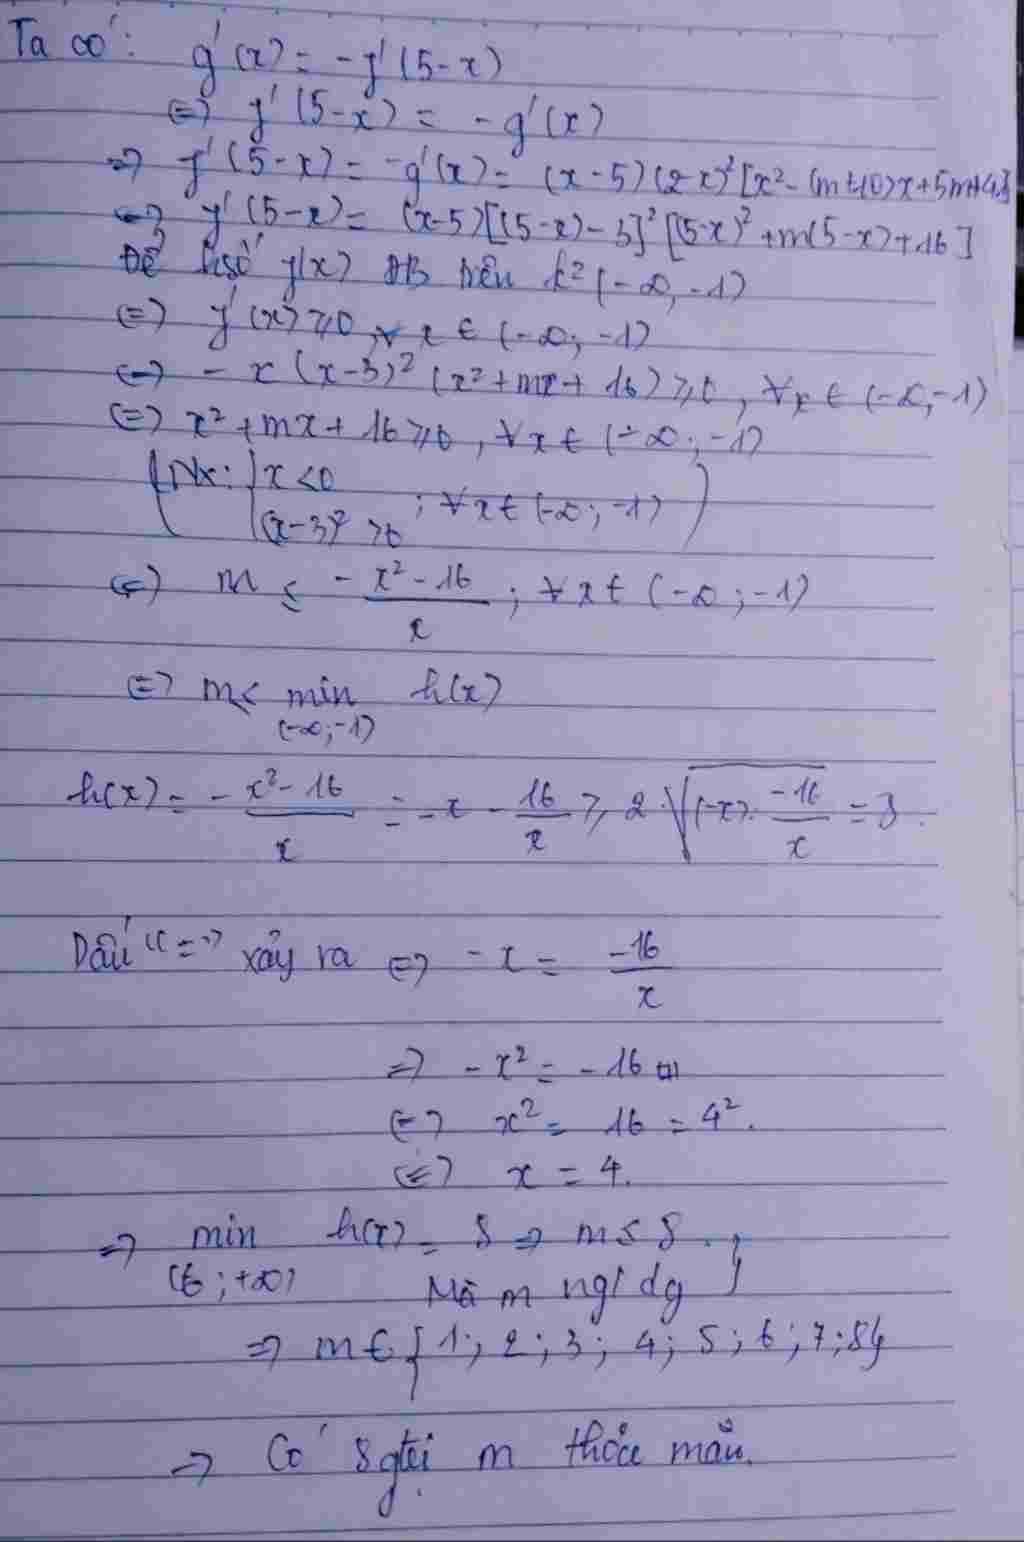 Ta có: g'(x) = -f'(5-x)
⇔ f'(5-x) = -g'(x)
⇒ f'(5-x) = -g'(x) = (x-5)(2-x)²[x² - (m+10)x + 5m+41]
⇔ f'(5-x) = (x-5)[(5-x)-3]²[(5-x)² + m(5-x) + 16]
Để hsố f(x) ĐB trên k² (-∞, -1)
⇔ f'(x) ≥ 0, ∀x ∈ (-∞; -1)
⇔ -x(x-3)²(x² + mx + 16) ≥ 0, ∀x ∈ (-∞, -1)
⇔ x² + mx + 16 ≥ 0, ∀x ∈ (-∞; -1)
(Nx: { x < 0
(x-3)² > 0 ; ∀x ∈ (-∞; -1))
⇔ m ≤ -x² - 16 / x ; ∀x ∈ (-∞; -1)
⇔ m ≤ min h(x)
(-∞; -1)
h(x) = -x² - 16 / x = -x - 16/x ≥ 2.√((-x).-16/x) = 8.
Dấu "=" xảy ra ⇔ -x = -16/x
⇒ -x² = -16
⇔ x² = 16 = 4².
⇔ x = 4.
⇒ min h(x) = 8 ⇒ m ≤ 8.
(6; +∞) Mà m ng/dg }
⇒ m ∈ {1; 2; 3; 4; 5; 6; 7; 8}
⇒ Có 8 gtrị m thỏa mãn.